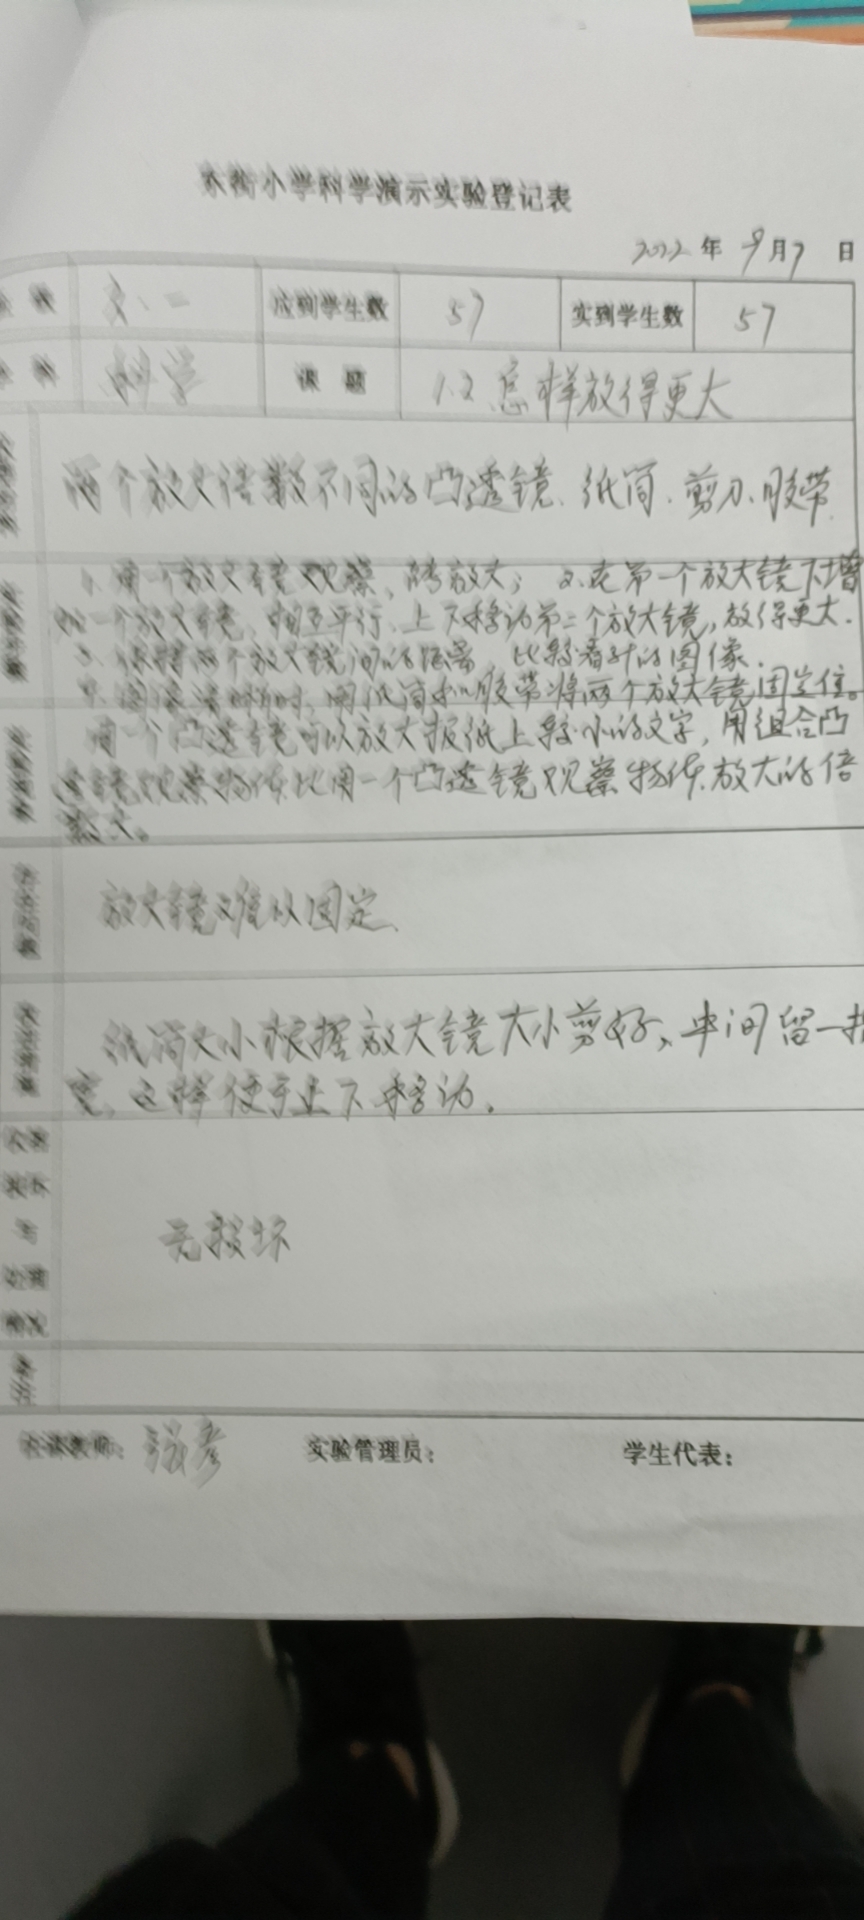 小学科学演示实验登记表
2022 年 9 月 7 日
应到学生数 57 实到学生数 57
科学 课题 1.2 怎样放得更大
两个放大倍数不同的凸透镜、纸筒、剪刀、胶带
1、用一个放大镜观察,放大; 2、在第一个放大镜下增
加一个放大镜,相互平行,上下移动第二个放大镜,放得更大.
3、保持两个放大镜间的距离 比较看到的图像.
4、图像清晰时,用纸筒和胶带将两个放大镜固定住。
用一个凸透镜可以放大报纸上较小的文字,用组合凸
透镜观察物体比用一个凸透镜观察物体放大的倍
数大。
放大镜难以固定、
纸筒大小根据放大镜大小剪好、中间留一指
宽、这样便于上下移动.
无损坏
任课教师: 实验管理员: 学生代表: